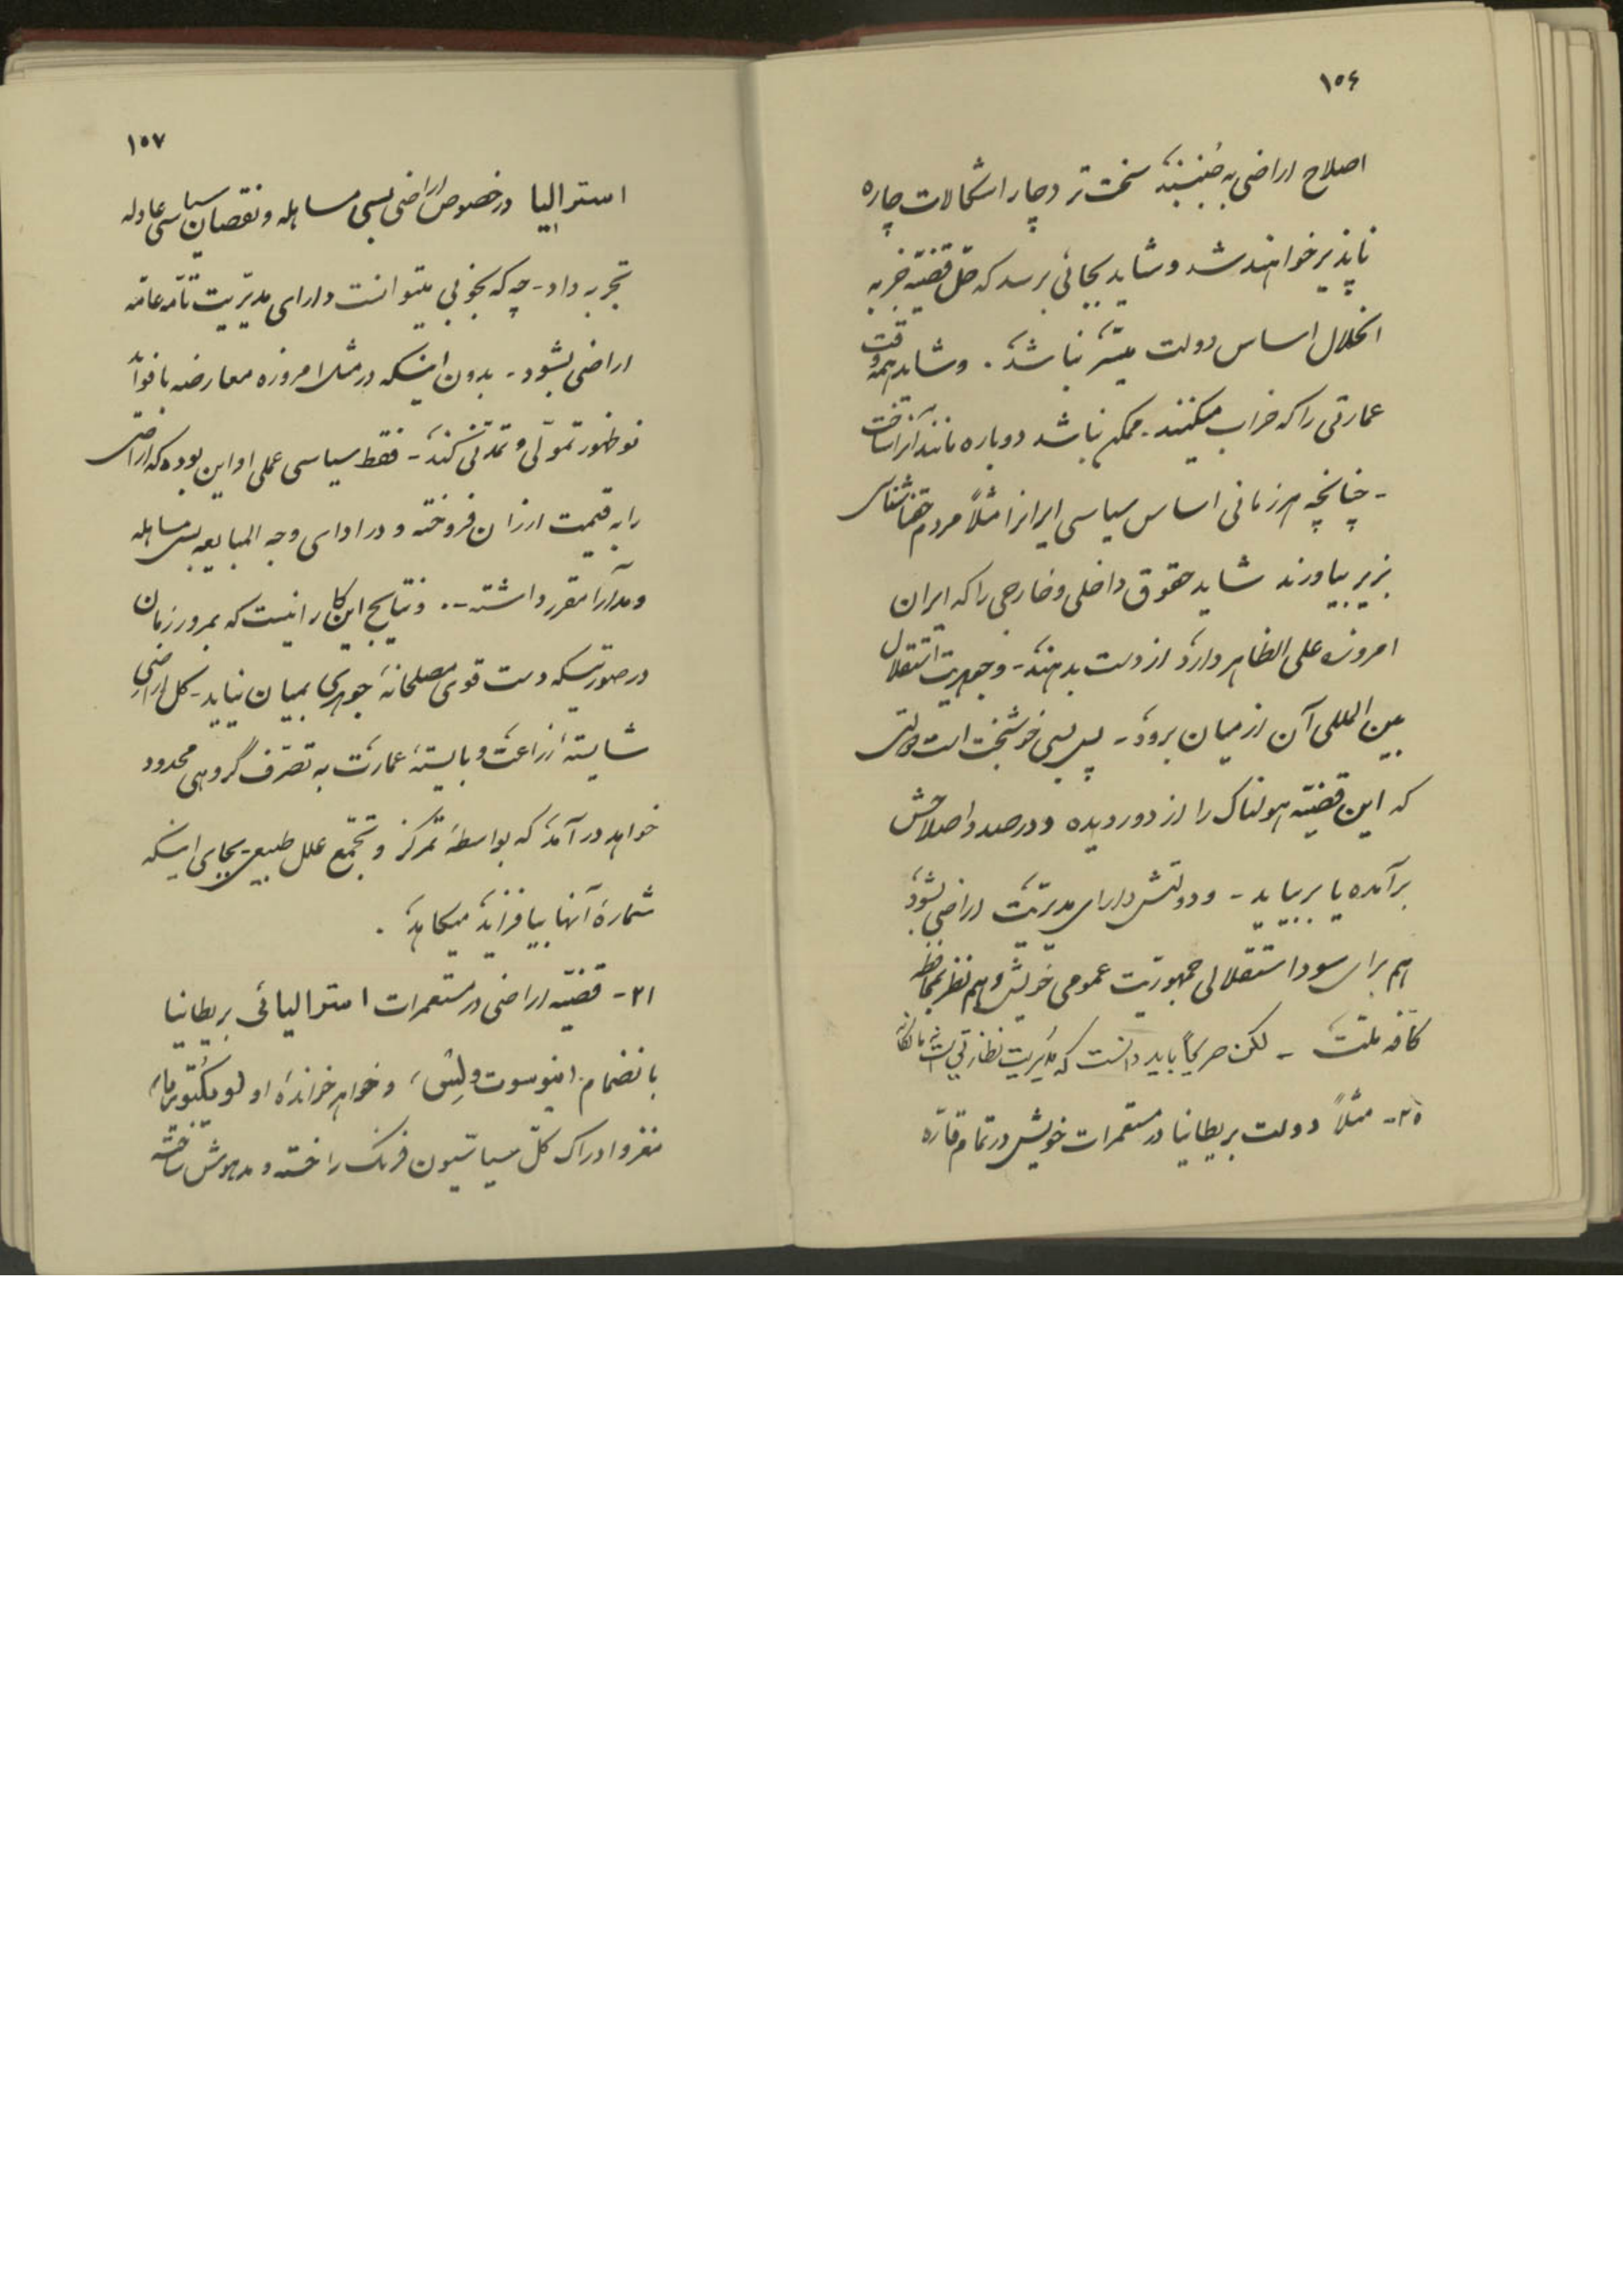 ١٥٦
اصلاح اراضی به جنبینند سخت‌تر دچار اشکالات چاره
ناپذیر خواهند شد و شاید بجائی برسد که حل قضیه جز به
انحلال اساس دولت میسّر نباشد . و شاید همه وقت
عمارتی را که خراب میکنند - ممکن نباشد دوباره مانند آنرا ساخت
- چنانچه هر زمانی اساس سیاسی ایرانرا مثلاً مردم حقناشناس
بزیر بیاورند شاید حقوق داخلی و خارجی را که ایران
امروزه علی الظاهر دارد از دست بدهند - و جوهریت استقلال
بین المللی آن از میان برود - پس بسی خوشبخت است دولتی
که این قضیّه هولناک را از دور دیده و درصدد اصلاحش
برآمده یا بربیاید - و دولتش دارای مدیریّت اراضی بشود
هم برای سود استقلالی جمهوریّت عمومی خویش و هم نظر بمحافظه
کافه ملّت - لکن صریحاً باید دانست که مدیریت نظارتی است نه مالکانه
٢٠- مثلاً دولت بریطانیا در مستعمرات خویش در تمام قارّه
١٥٧
استرالیا در خصوص اراضی بسی مساهله و نقصان سیاسی عادله
تجربه داد - چه که بخوبی میتوانست دارای مدیریت تامّه عامّه
اراضی بشود - بدون اینکه در مثل امروزه معارضه با فوائد
نو ظهور تموّلی و تمدّنی کند - فقط سیاسی عملی او این بوده که اراضی
را به قیمت ارزان فروخته و در ادای وجه المبایعه بس مساهله
و مدارا مقرر داشته - . و نتایج این کار اینست که بمرور زمان
در صورتیکه دست قوی مصلحانهٔ جوهری بمیان نیاید - کل اراضی
شایستهٔ زراعت و بایستهٔ عمارت به تصرّف گروهی محدود
خواهد درآمد که بواسطهٔ تمرکز و تجمّع علل طبیعی بجای اینکه
شمارهٔ آنها بیافزاید میکاهد .
٢١- قضیّه اراضی در مستعمرات استرالیائی بریطانیا
بانضمام نیوسوت ولِس، و خواهر خواندهٔ او لو ویکتوریا،
مغز و ادراک کلّ سیاسّیون فرنگ را خسته و مدهوش ساخته